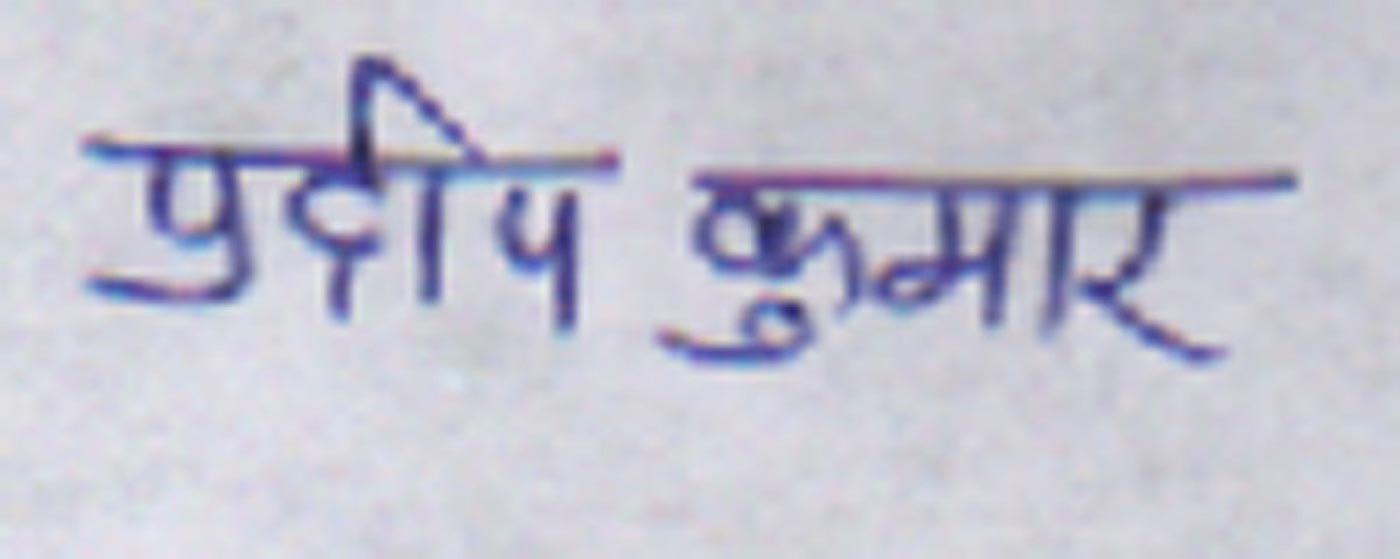 प्रदीप कुमार